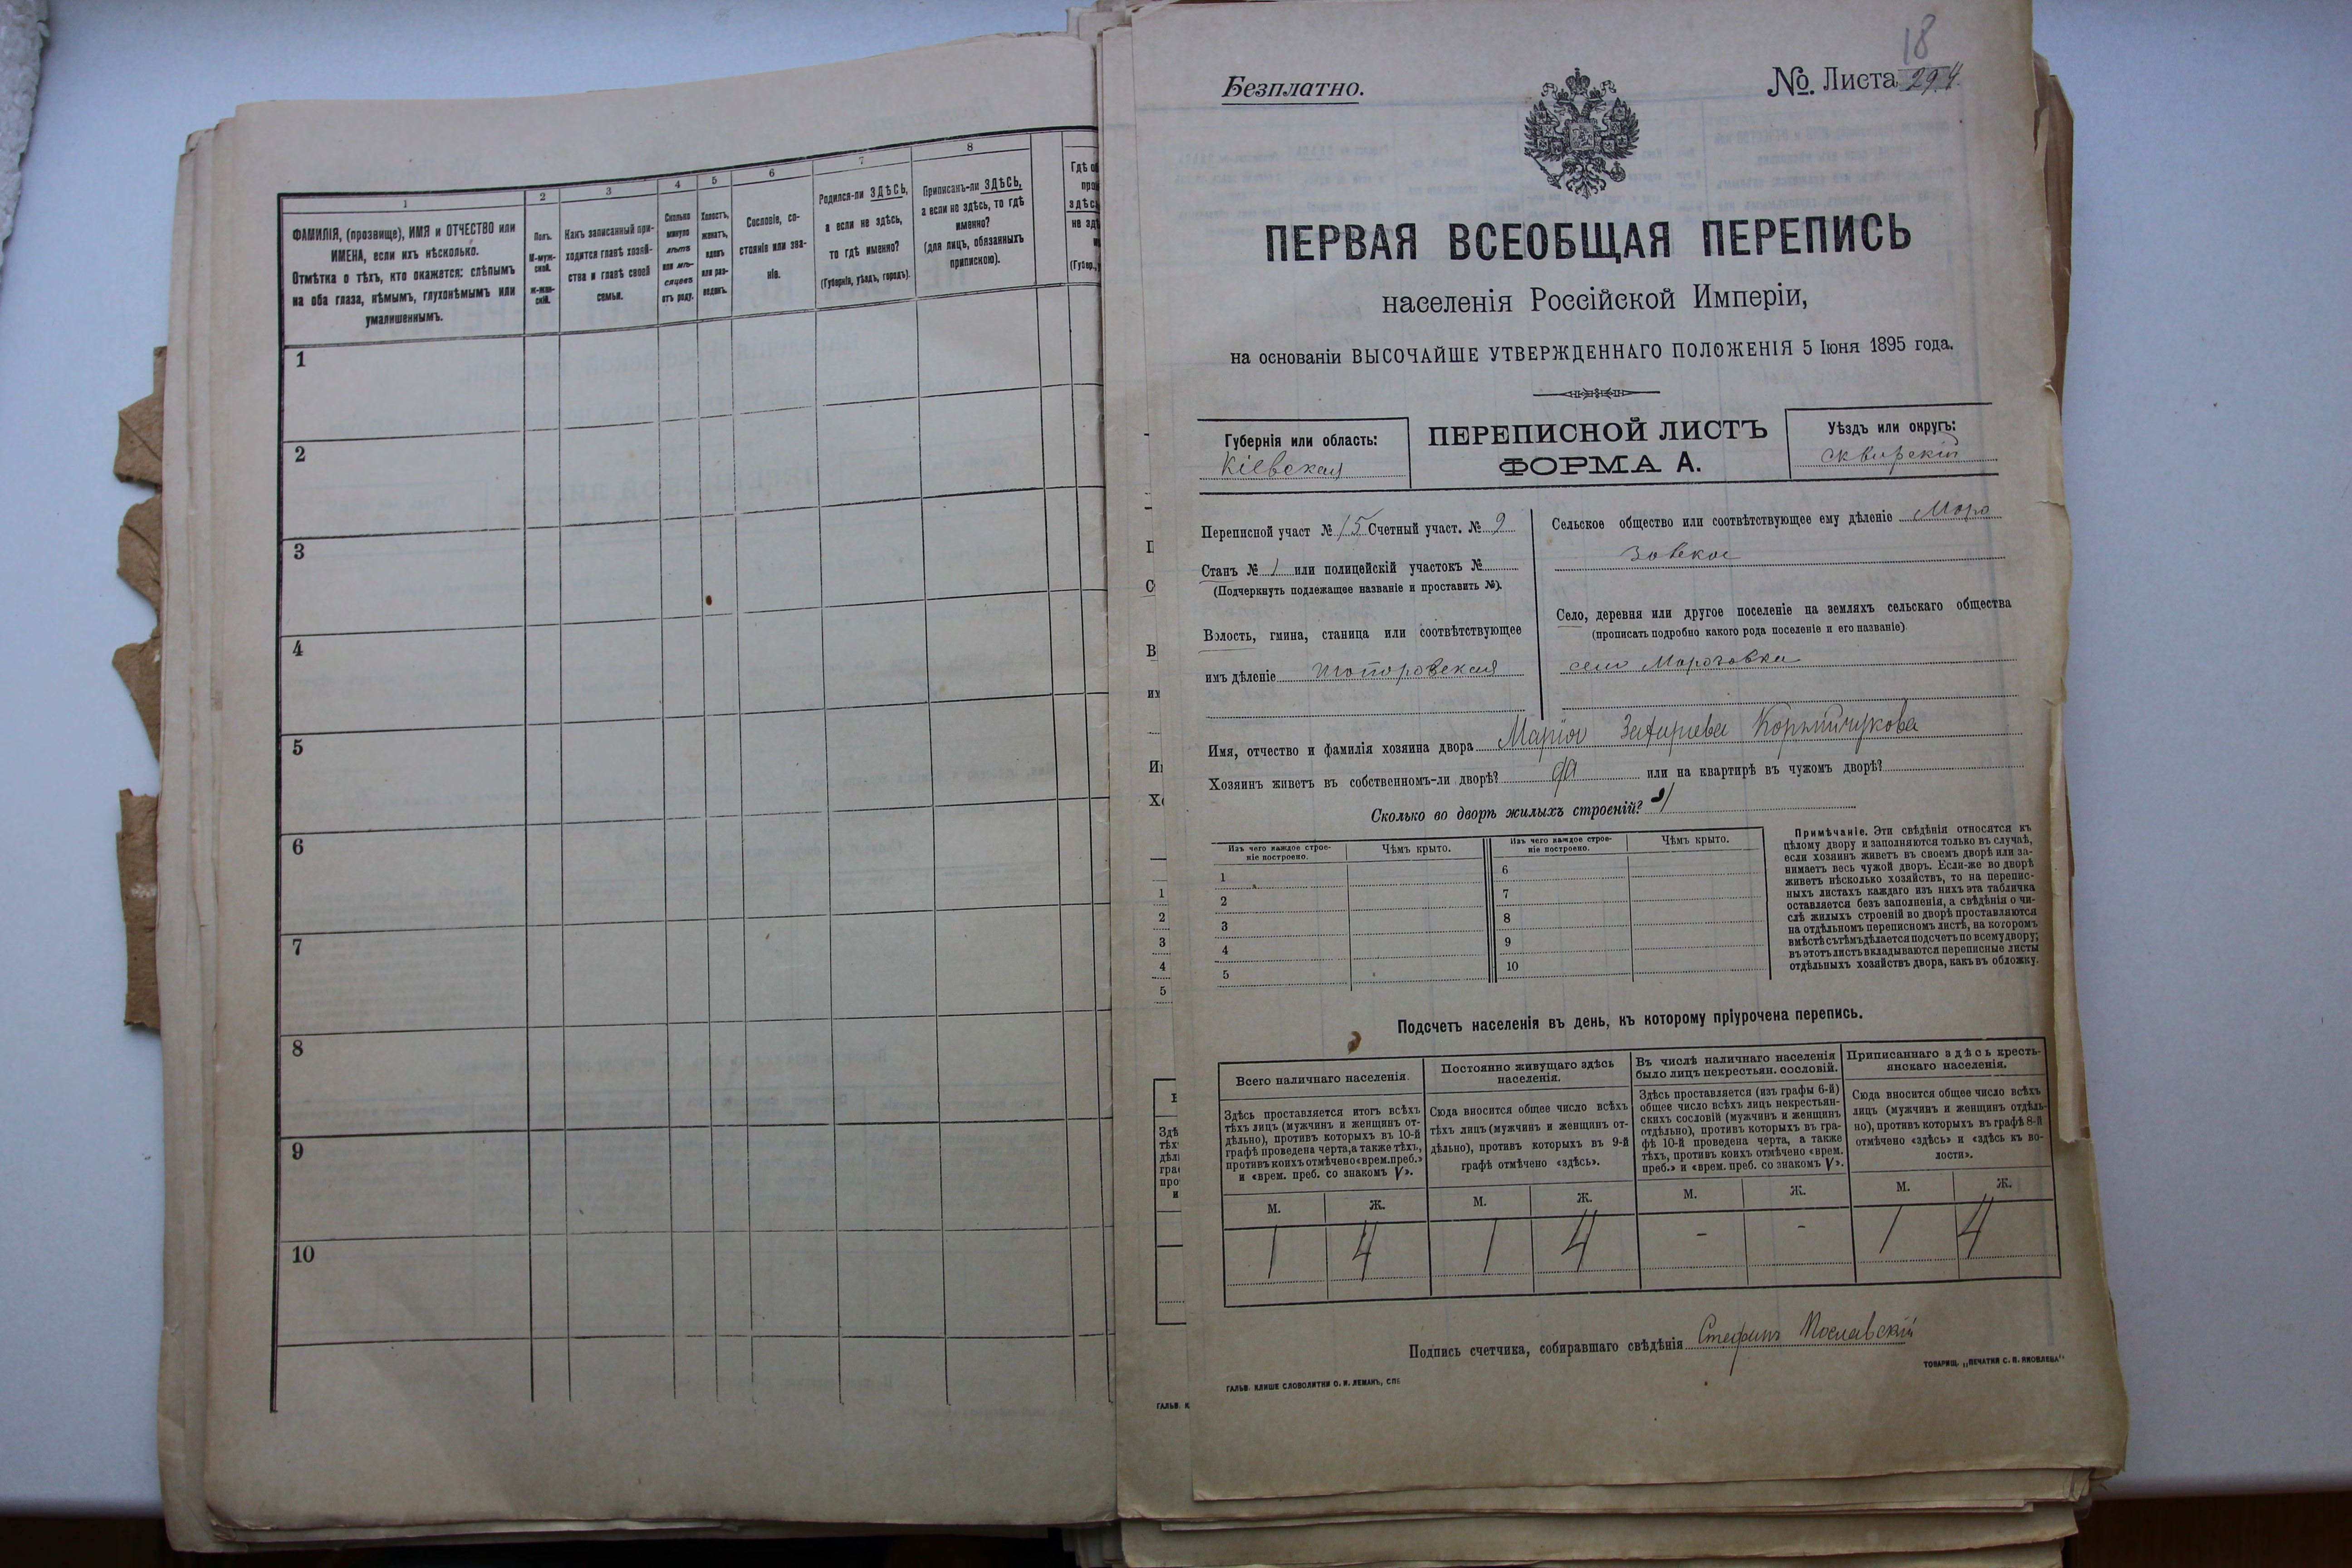 1
ФАМИЛІЯ, (прозвище), ИМЯ и ОТЧЕСТВО или
ИМЕНА, если ихъ нѣсколько.
Отмѣтка о тѣхъ, кто окажется: слѣпымъ
на оба глаза, нѣмымъ, глухонѣмымъ или
умалишеннымъ.
2
Полъ.
М-муж-
ской.
Ж-жен-
скій.
3
Какъ записанный при-
ходится главѣ хозяй-
ства и главѣ своей
семьи.
4
Сколько
минуло
лѣтъ
или мѣ-
сяцевъ
отъ роду.
5
Холостъ,
женатъ,
вдовъ
или раз-
веденъ.
6
Сословіе, со-
стояніе или зва-
ніе.
7
Родился-ли ЗДѢСЬ,
а если не здѣсь,
то гдѣ именно?
(Губернія, уѣздъ, городъ).
8
Приписанъ-ли ЗДѢСЬ,
а если но здѣсь, то гдѣ
именно?
(для лицъ, обязанныхъ
припискою).
1
2
3
4
5
6
7
8
9
10
18
Безплатно.
№ Листа 29.4.
ПЕРВАЯ ВСЕОБЩАЯ ПЕРЕПИСЬ
населенія Россійской Имперіи,
на основаніи ВЫСОЧАЙШЕ УТВЕРЖДЕННАГО ПОЛОЖЕНІЯ 5 Іюня 1895 года.
Губернія или область:
Кіевская
ПЕРЕПИСНОЙ ЛИСТЪ
ФОРМА А.
Уѣздъ или округъ:
Сквирскій
Переписной участ № 15 Счетный участ. № 9
Станъ № 1 или полицейскій участокъ №
(Подчеркнуть подлежащее названіе и проставить №).
Волость, гмина, станица или соотвѣтствующее
имъ дѣленіе Топоровская
Сельское общество или соотвѣтствующее ему дѣленіе Моро
зовское
Село, деревня или другое поселеніе на земляхъ сельскаго общества
(прописать подробно какого рода поселеніе и его названіе)
село Морозовка
Имя, отчество и фамилія хозяина двора Марія
Хозяинъ живетъ въ собственномъ-ли дворѣ? да или на квартирѣ въ чужомъ дворѣ?
Сколько во дворѣ жилыхъ строеній? 1
Изъ чего каждое строе-
ніе построено.
Чѣмъ крыто.
Изъ чего каждое строе-
ніе построено.
Чѣмъ крыто.
1 6
2 7
3 8
4 9
5 10
Примѣчаніе. Эти свѣдѣнія относятся къ
цѣлому двору и заполняются только въ случаѣ,
если хозяинъ живетъ въ своемъ дворѣ или за-
нимаетъ весь чужой дворъ. Если-же во дворѣ
живетъ нѣсколько хозяйствъ, то на перепис-
ныхъ листахъ каждаго изъ нихъ эта табличка
оставляется безъ заполненія, а свѣдѣнія о чи-
слѣ жилыхъ строеній во дворѣ проставляются
на отдѣльномъ переписномъ листѣ, на которомъ
вмѣстѣ съ тѣмъ дѣлается подсчетъ по всему двору;
въ этотъ листъ вкладываются переписные листы
отдѣльныхъ хозяйствъ двора, какъ въ обложку.
Подсчетъ населенія въ день, къ которому пріурочена перепись.
Всего наличнаго населенія.
Здѣсь проставляется итогъ всѣхъ
тѣхъ лицъ (мужчинъ и женщинъ от-
дѣльно), противъ которыхъ въ 10-й
графѣ проведена черта, а также тѣхъ,
противъ коихъ отмѣчено «врем. преб.»
и «врем. преб. со знакомъ V».
Постоянно живущаго здѣсь
населенія.
Сюда вносится общее число всѣхъ
тѣхъ лицъ (мужчинъ и женщинъ от-
дѣльно), противъ которыхъ въ 9-й
графѣ отмѣчено «здѣсь».
Въ числѣ наличнаго населенія
было лицъ некрестьян. сословій.
Здѣсь проставляется (изъ графы 6-й)
общее число всѣхъ лицъ некрестьян-
скихъ сословій (мужчинъ и женщинъ
отдѣльно), противъ которыхъ въ гра-
фѣ 10-й проведена черта, а также
тѣхъ, противъ коихъ отмѣчено «врем.
преб.» и «врем. преб. со знакомъ V».
Приписаннаго здѣсь кресть-
янскаго населенія.
Сюда вносится общее число всѣхъ
лицъ (мужчинъ и женщинъ отдѣль-
но), противъ которыхъ въ графѣ 8-й
отмѣчено «здѣсь» и «здѣсь къ во-
лости».
М. Ж. М. Ж. М. Ж. М. Ж.
1 4 1 4 - - 1 4
Подпись счетчика, собиравшаго свѣдѣнія Стефанъ Пославскій
ГАЛЬВ. КЛИШЕ СЛОВОЛИТНИ О. И. ЛЕМАНЪ, СПБ
ТОВАРИЩ. „ПЕЧАТНЯ С. П. ЯКОВЛЕВА"